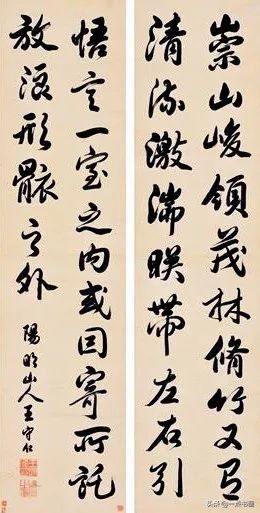 崇山峻領茂林脩竹又有
清流激湍暎帶左右引
悟言一室之内或因寄所託
放浪形骸之外
陽明山人王守仁
头条 @一点书画